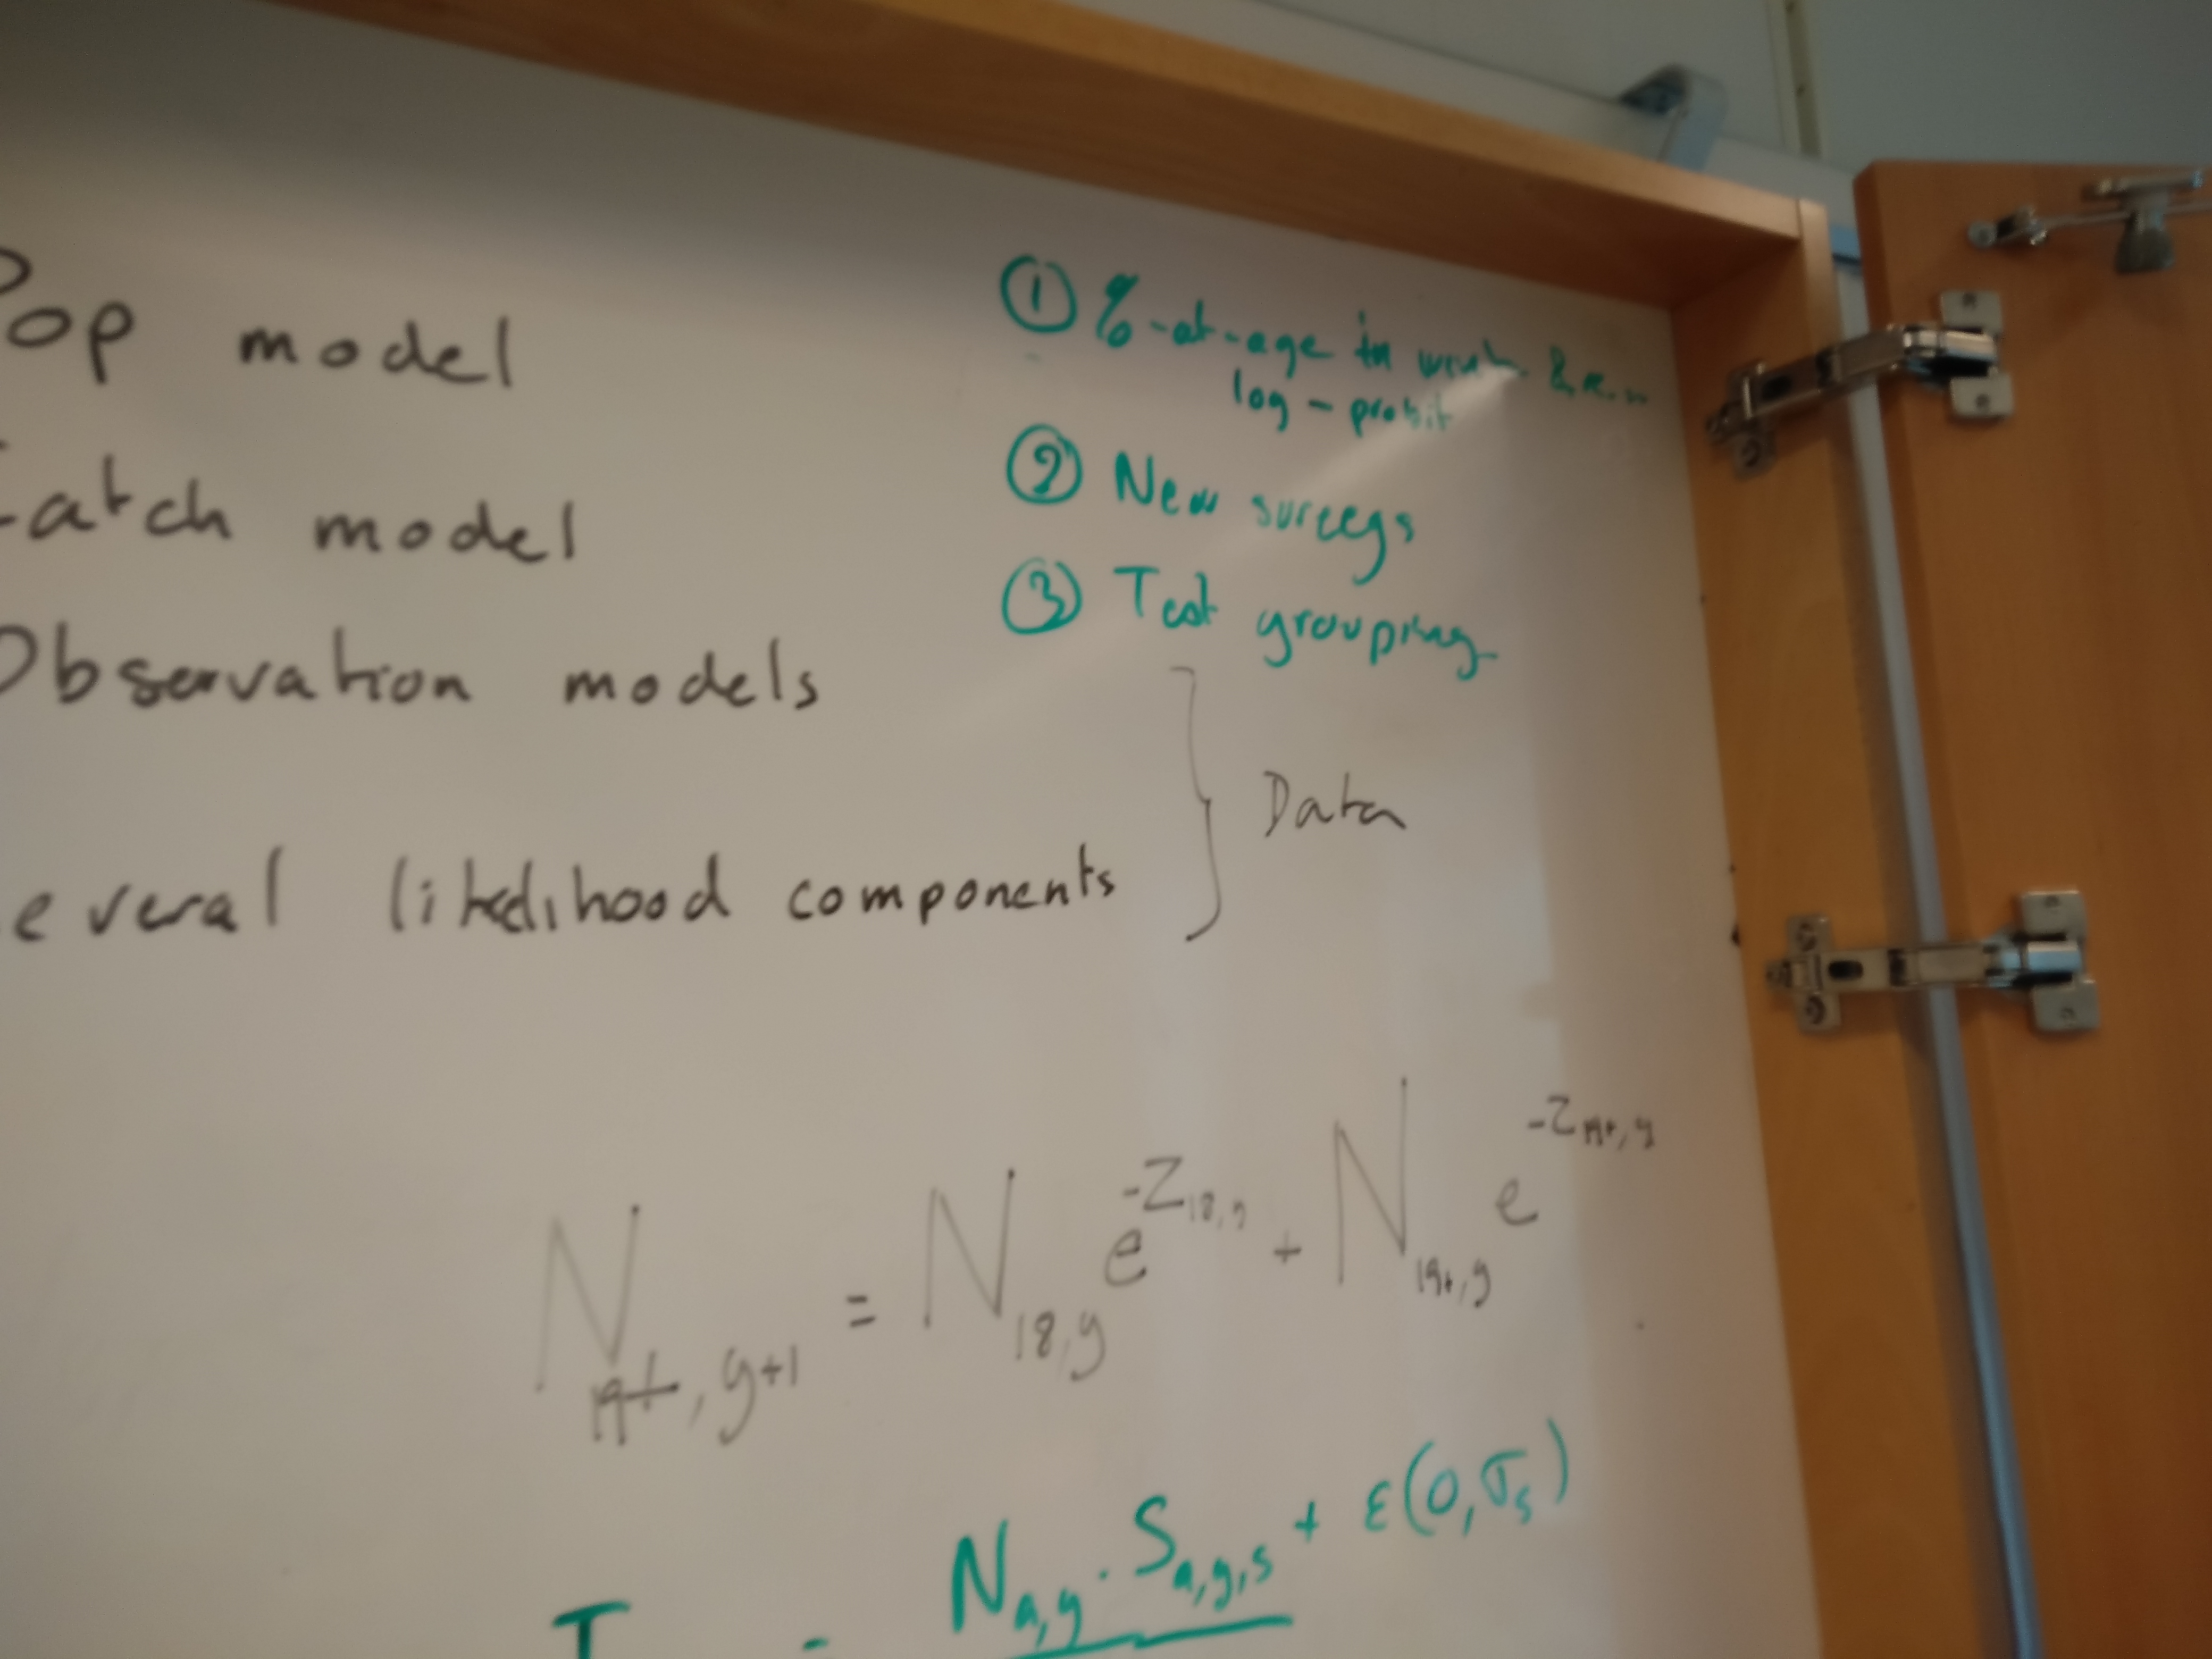 Pop model
Catch model
Observation models
everal likelihood components
Data
① %-at-age in
log-probit
② New surveys
③ Test grouping
N19+,y+1 = N18,y e^-Z18,y + N19+,y e^-Z19+,y
Na,y · Sa,y,s + ε(0,σs)